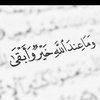 وَمَا عِندَ اللَّهِ خَيْرٌ وَأَبْقَى